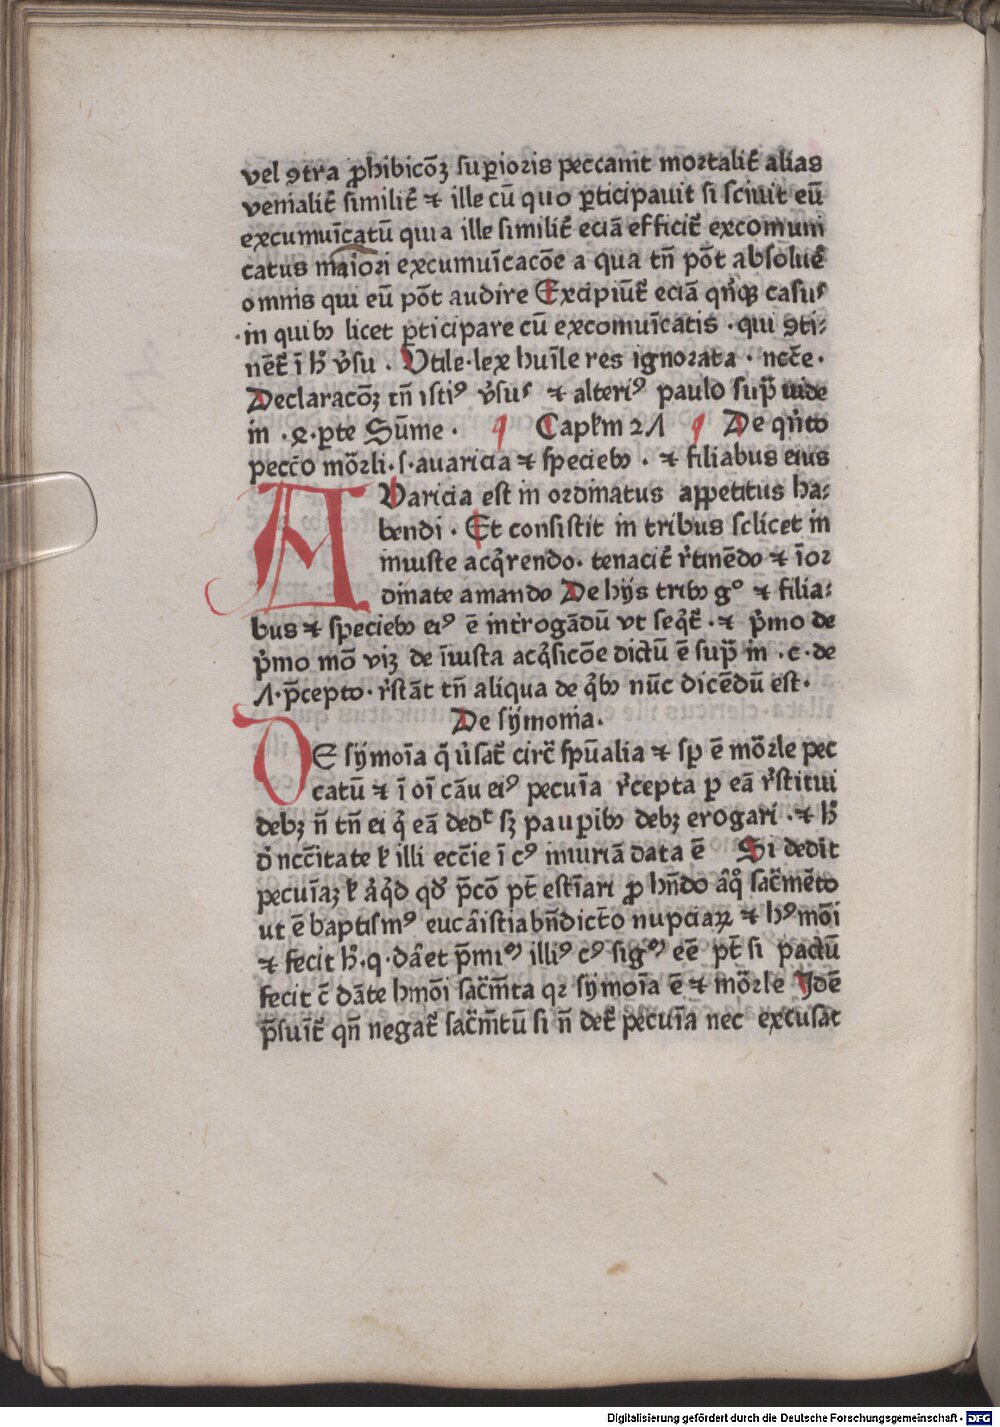 vel ꝯtra ꝓhibicōꝫ suꝑioris peccanit mortalit̄ alias
venialit̄ similit̄ ⁊ ille cū quo ꝑticipauit si sciuit eū
excumuīcatū quia ille similit̄ eciā efficit̄ excomuni
catus maiori excumuīcacōe a qua tn̄ pōt absolue᷑
omnis qui eū pōt audire Excipiūt᷑ eciā qn̄qꝫ casus
·in quibꝫ licet ꝑticipare cū excomuīcatis · qui ꝯti⸗
nēt᷑ ī h̄ v̓su . Vtile·lex huīle res ignorata · necc̄e·
Declaracōꝫ tn̄ istiꝰ v̓sus ⁊ alteriꝰ paulo sup̄ uide
in .2.ꝑte Sūme . ¶ Capl̄m 21 ¶ De qn̄to
pecc̄o mōrli·s·auaricia ⁊ speciebꝫ · ⁊ filiabus eius
AVaricia est in ordinatus appetitus ha⸗
bendi · Et consistit in tribus sclicet in
iniuste acq̓rendo· tenacit̄ r̓tinēdo ⁊ īor
dinate amando De hijs tribꝫ gº ⁊ filia⸗
bus ⁊ speciebꝫ eiꝰ ē int̓rogādū vt seq̓t᷑ ·⁊ p̓mo de
p̓mo mō viꝫ de īiusta acq̓sicōe dictū ē sup̄ in .c·de
1·p̄cepto· r̓stāt tn̄ aliqua de q̓bꝫ nūc dicēdū est·
De sijmonia·
DE sijmoīa q̄ v̓sat᷑ circ̄ spūalia ⁊ sp̄ ē mōrle pec
catū ⁊ ī oī cāu eiꝰ pecuīa r̓cepta ꝑ eā r̓stitui
debꝫ n̄ tn̄ ei q̓ eā dedᵗ sꝫ pauꝑibꝫ debꝫ erogari ·⁊ h̄
d̓ necc̄itate ł illi ecc̄ie ī cꝰ iniuriā data ē Si dedit
pecuīaꝫ ł aq̓d qd̓ p̄cō pt̄ estīari ꝓ hn̄do aq̓ sac̄mēto
ut ē baptismꝰ eucaistia bn̄dict̄o nupciaꝝ ⁊ hꝰ mōi
⁊ fecit h̄·q·daet p̄miꝰ illiꝰ cꝰ sigꝰ eē pt̄ si pactū
fecit c̄ dāte hmōi sac̄m̄ta qꝛ sijmoīa ē ⁊ mōrle Idē
p̄suīt᷑ qn̄ negat᷑ sac̄m̄tū si n̄ det᷑ pecuīa nec excusat
Digitalisierung gefördert durch die Deutsche Forschungsgemeinschaft - DFG